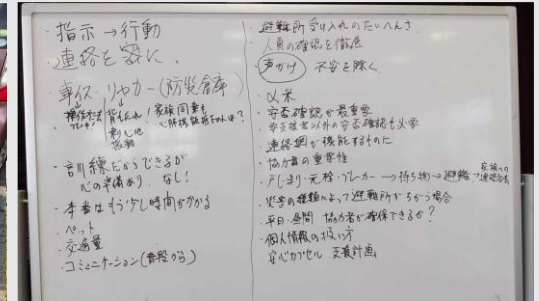 ・指示→行動
連絡を密に.
・車イス・リヤカー(防災倉庫)
操作方法
家族同乗も
・訓練だからできるが
心の準備あり. なし!
・本番はもう少し時間がかかる
・ペット
・交通量
・コミュニケーション(普段から)
・避難所受け入れのたいへんさ
・人員の確認を徹底
・声がけ 不安を除く.
・安否確認が最重要
以外の安否確認も必要
・連絡網が機能するのか
・協力者の重要性
・戸じまり・元栓・ブレーカー→持ち物→避難
家族への
連絡方法
・災害の種類によって避難所がちがう場合
・平日・昼間 協力者が確保できるか?
・個人情報の扱い方
・安心カプセル 支援計画